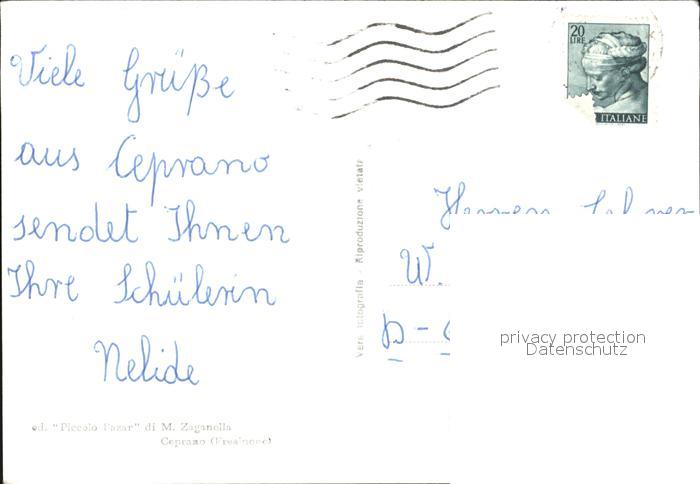 Viele Grüße
aus Ceprano
sendet Ihnen
Ihre Schülerin
Nelide
ed. "Piccolo Bazar" di M. Zaganolla
Ceprano (Frosinone)
Vera fotografia - Riproduzione vietata
20
LIRE
ITALIANE
Herren
W.
D -
privacy protection
Datenschutz